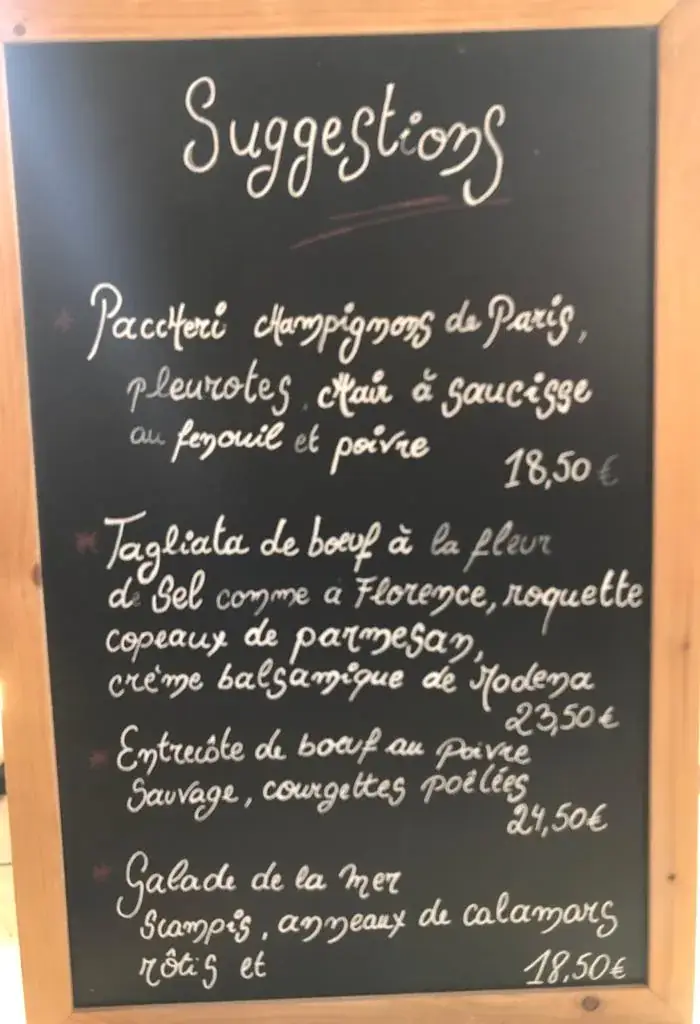 Suggestions
* Paccheri champignons de Paris,
pleurotes, chair à saucisse
au fenouil et poivre
18,50 €
* Tagliata de boeuf à la fleur
de sel comme a Florence, roquette
copeaux de parmesan,
crème balsamique de Modena
23,50 €
* Entrecôte de boeuf au Poivre
Sauvage, courgettes poêlées
24,50 €
* Salade de la Mer
Scampis, anneaux de calamars
rôtis et 18,50 €